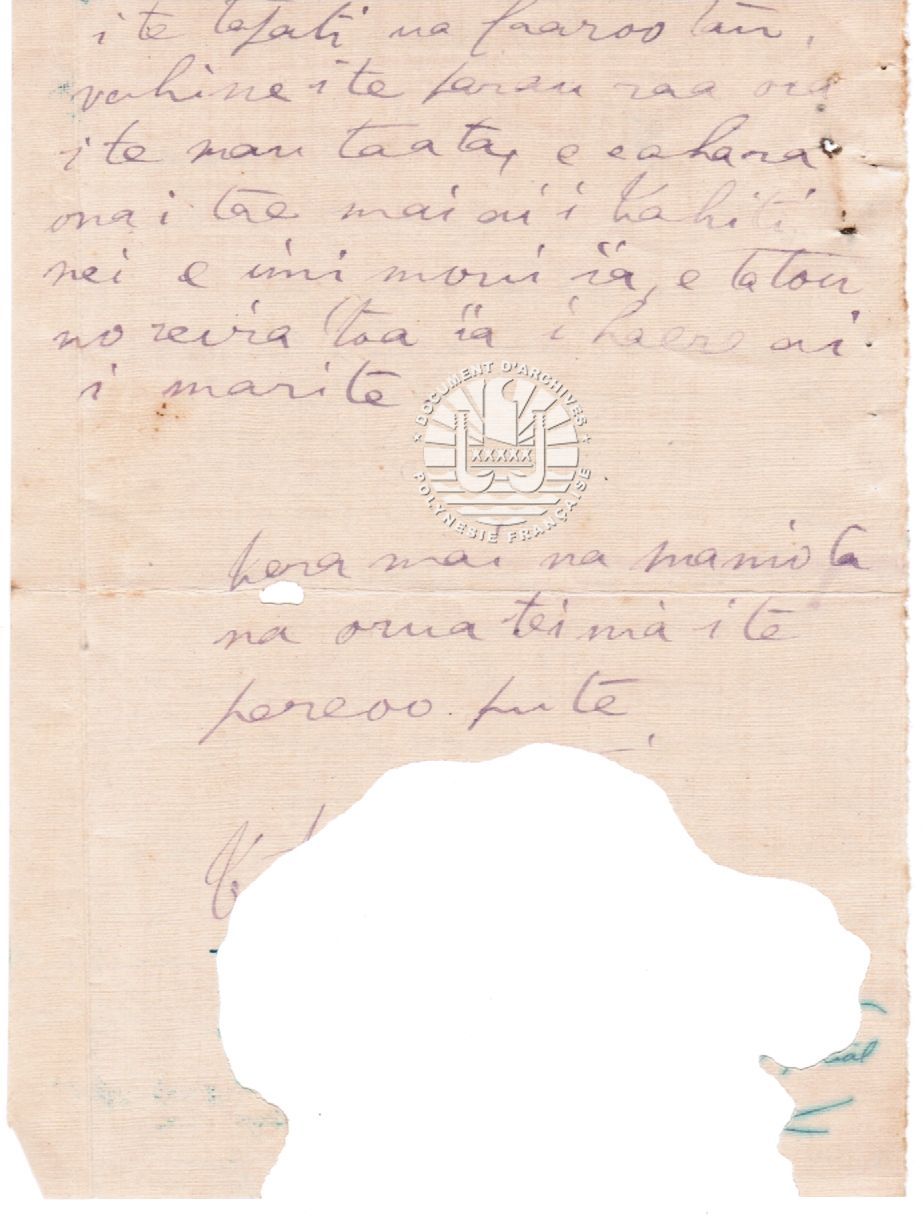 i te tapati ua faaroo tau
vahine i te parau raa ona
i te mau taata, e eahara
ona i tae mai ai i Tahiti
nei e imi moni ïa, e tatou
no reira toa ïa i haere ai
i marite
DOCUMENT D'ARCHIVES
XXXXX
POLYNESIE FRANÇAISE
tera mai na maniota
na orua teina i te
pereoo pute